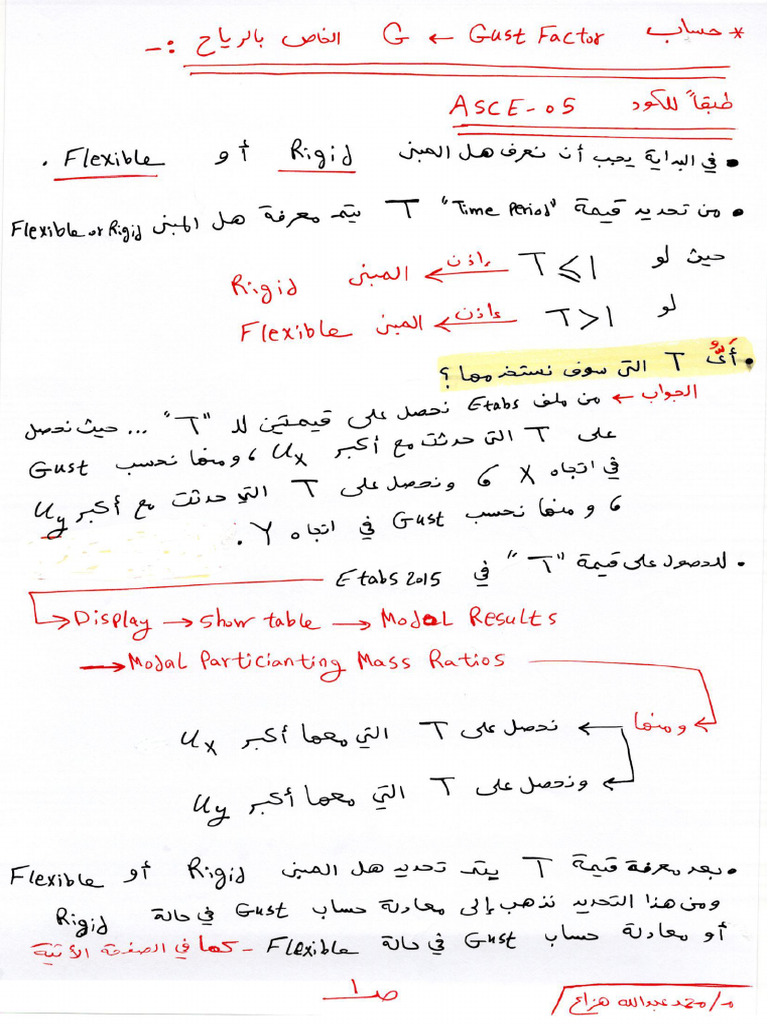 * حساب Gust Factor ← G الخاص بالرياح :-
طبقاً للكود ASCE-05
• في البداية يجب أن نعرف هل المبنى Rigid أو Flexible .
• من تحديد قيمة "Time Period" T يتم معرفة هل المبنى Flexible or Rigid
حيث لو T ⩽ 1 إذن ← المبنى Rigid
لو T > 1 إذن ← المبنى Flexible
• أىُّ T التى سوف نستخدمها ؟
الجواب ← من ملف Etabs نحصل على قيمتين للـ "T" ... حيث نحصل
على T التى حدثت مع أكبر Ux ، ومنها نحسب Gust
في اتجاه X ، ونحصل على T التي حدثت مع أكبر Uy
، ومنها نحسب Gust في اتجاه Y .
• للحصول على قيمة "T" في Etabs 2015
→ Display → Show table → Modal Results
→ Modal Particianting Mass Ratios
ومنها ← نحصل على T التي معها أكبر Ux
← ونحصل على T التي معها أكبر Uy
• بعد معرفة قيمة T يتم تحديد هل المبنى Rigid أو Flexible
ومن هذا التحديد نذهب إلى معادلة حساب Gust في حالة Rigid
أو معادلة حساب Gust في حالة Flexible - كما في الصفحة الآتية
ص ١
م/محمد عبدالله هزاع